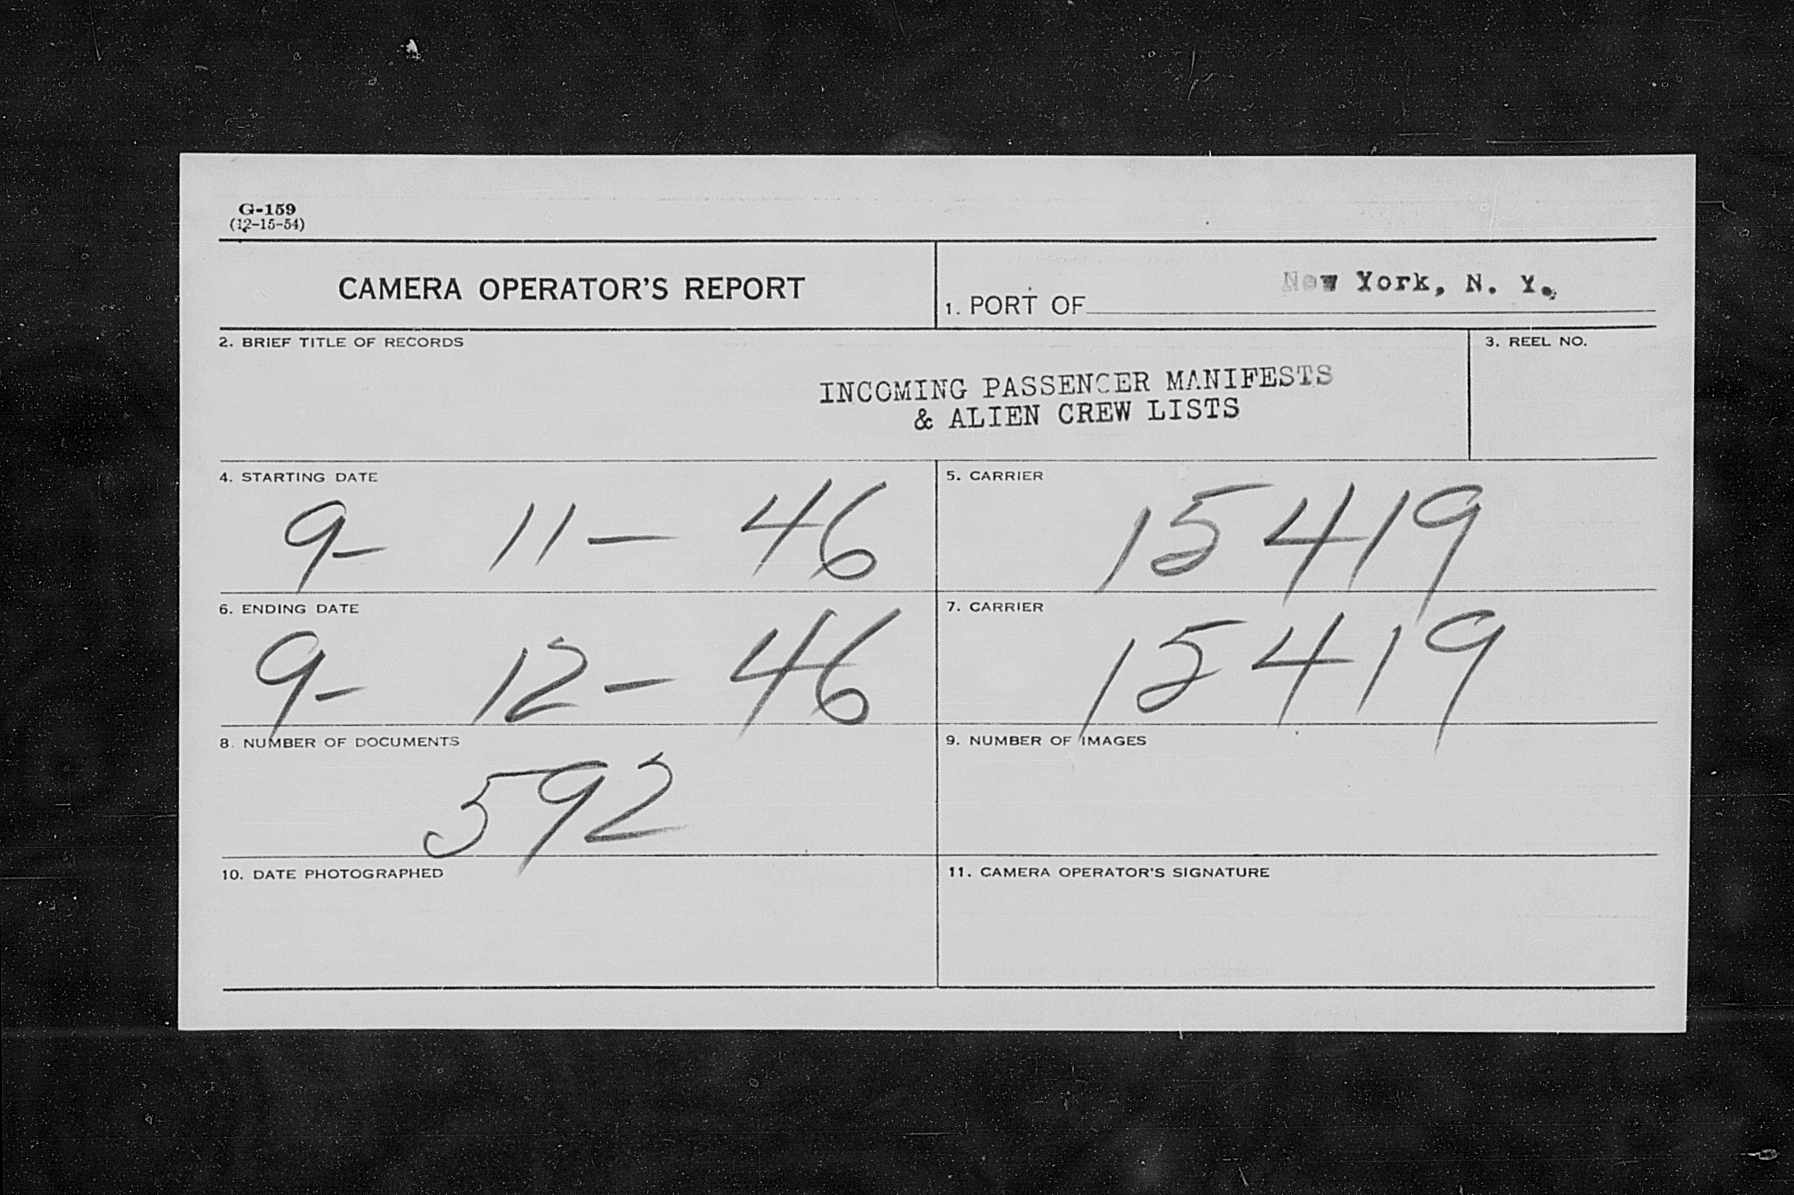 G-159
(12-15-54)
CAMERA OPERATOR'S REPORT
1. PORT OF New York, N. Y.
2. BRIEF TITLE OF RECORDS
INCOMING PASSENGER MANIFESTS
& ALIEN CREW LISTS
3. REEL NO.
4. STARTING DATE
9- 11- 46
5. CARRIER
15419
6. ENDING DATE
9- 12- 46
7. CARRIER
15419
8. NUMBER OF DOCUMENTS
592
9. NUMBER OF IMAGES
10. DATE PHOTOGRAPHED
11. CAMERA OPERATOR'S SIGNATURE